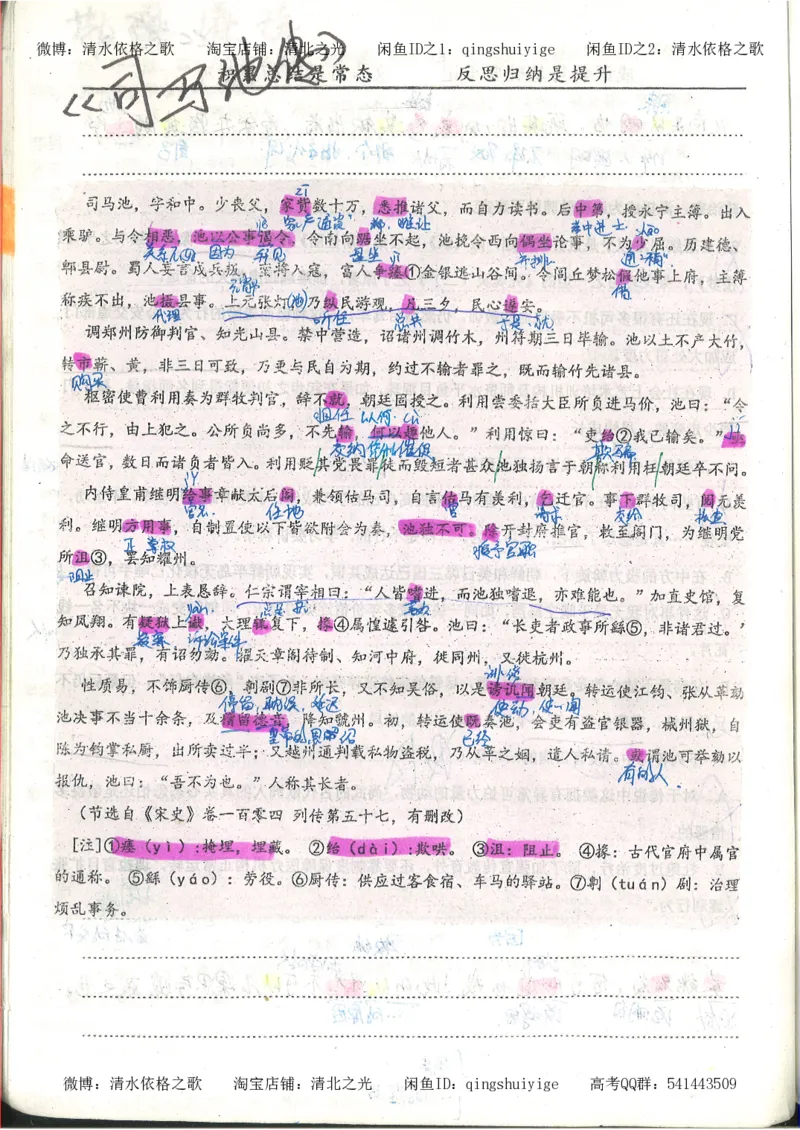 微博：清水依格之歌 淘宝店铺：清北之光 闲鱼ID之1：qingshuiyige 闲鱼ID之2：清水依格之歌
积累总结是常态 反思归纳是提升
《司马池传》
司马池，字和中。少丧父，家赀数十万，悉推诸父，而自力读书。后中第，授永宁主簿。出入
家产通"资" 都 推让 考中进士
乘驴。与令相恶，池以公事谒令，令南向踞坐不起，池挽令西向偶坐论事，不为少屈。历建德、
关系不好 因为 拜见 盘坐 并排 通"稍"
郫县尉。蜀人妄言戍兵叛，蛮将入寇，富人争瘗①金银逃山谷间。令闾丘梦松假他事上府，主簿
借
称疾不出，池摄县事。上元张灯(池)乃纵民游观，凡三夕，民心遂安。
代理 听任 总共 于是、就
调郑州防御判官、知光山县。禁中营造，诏诸州调竹木，州符期三日毕输。池以土不产大竹，
转市蕲、黄，非三日可致，乃更与民自为期，约过不输者罪之，既而输竹先诸县。
购买
枢密使曹利用奏为群牧判官，辞不就，朝廷固授之。利用尝委括大臣所负进马价，池曰："令
担任 以何
之不行，由上犯之。公所负尚多，不先输，何以趣他人。"利用惊曰："吏绐②我已输矣。"亟
欺骗
命送官，数日而诸负者皆入。利用贬，其党畏罪，从而毁短者甚众，池独扬言于朝，称利用枉，朝廷卒不问。
内侍皇甫继明给事章献太后阁，兼领估马司，自言估马有羡利，乞迁官。事下群牧司，阅无羡
官名 任地 曾 请求 交给 检查
利。继明方用事，自制置使以下皆欲附会为奏，池独不可。除开封府推官，敕至阁门，为继明党
正 掌权 授予官职
所沮③，罢知耀州。
阻止
召知谏院，上表恳辞。仁宗谓宰相曰："人皆嗜进，而池独嗜退，亦难能也。"加直史馆，复
知凤翔。有疑狱上谳，大理辄复下，掾④属惶遽引咎。池曰："长吏者政事所繇⑤，非诸君过。"
乃独承其罪，有诏勿劾。擢天章阁待制、知河中府，徙同州，又徙杭州。
性质易，不饰厨传⑥，剸剧⑦非所长，又不知吴俗，以是谤讥闻朝廷。转运使江钧、张从革劾
使动，使…闻
池决事不当十余条，及稽留德音，降知虢州。初，转运使既奏池，会吏有盗官银器，械州狱，自
停留、耽误、延迟 已经
陈为钧掌私厨，出所卖过半；又越州通判载私物盗税，乃从革之姻，遣人私请。或谓池可举劾以
有的人
报仇，池曰："吾不为也。"人称其长者。
（节选自《宋史》卷一百零四 列传第五十七，有删改）
[注]①瘗（yì）:掩埋，埋藏。 ②绐（dài）:欺哄。 ③沮：阻止。 ④掾：古代官府中属官
的通称。 ⑤繇（yáo）：劳役。⑥厨传：供应过客食宿、车马的驿站。⑦剸（tuán）剧：治理
烦乱事务。
微博：清水依格之歌 淘宝店铺：清北之光 闲鱼ID：qingshuiyige 高考QQ群：541443509